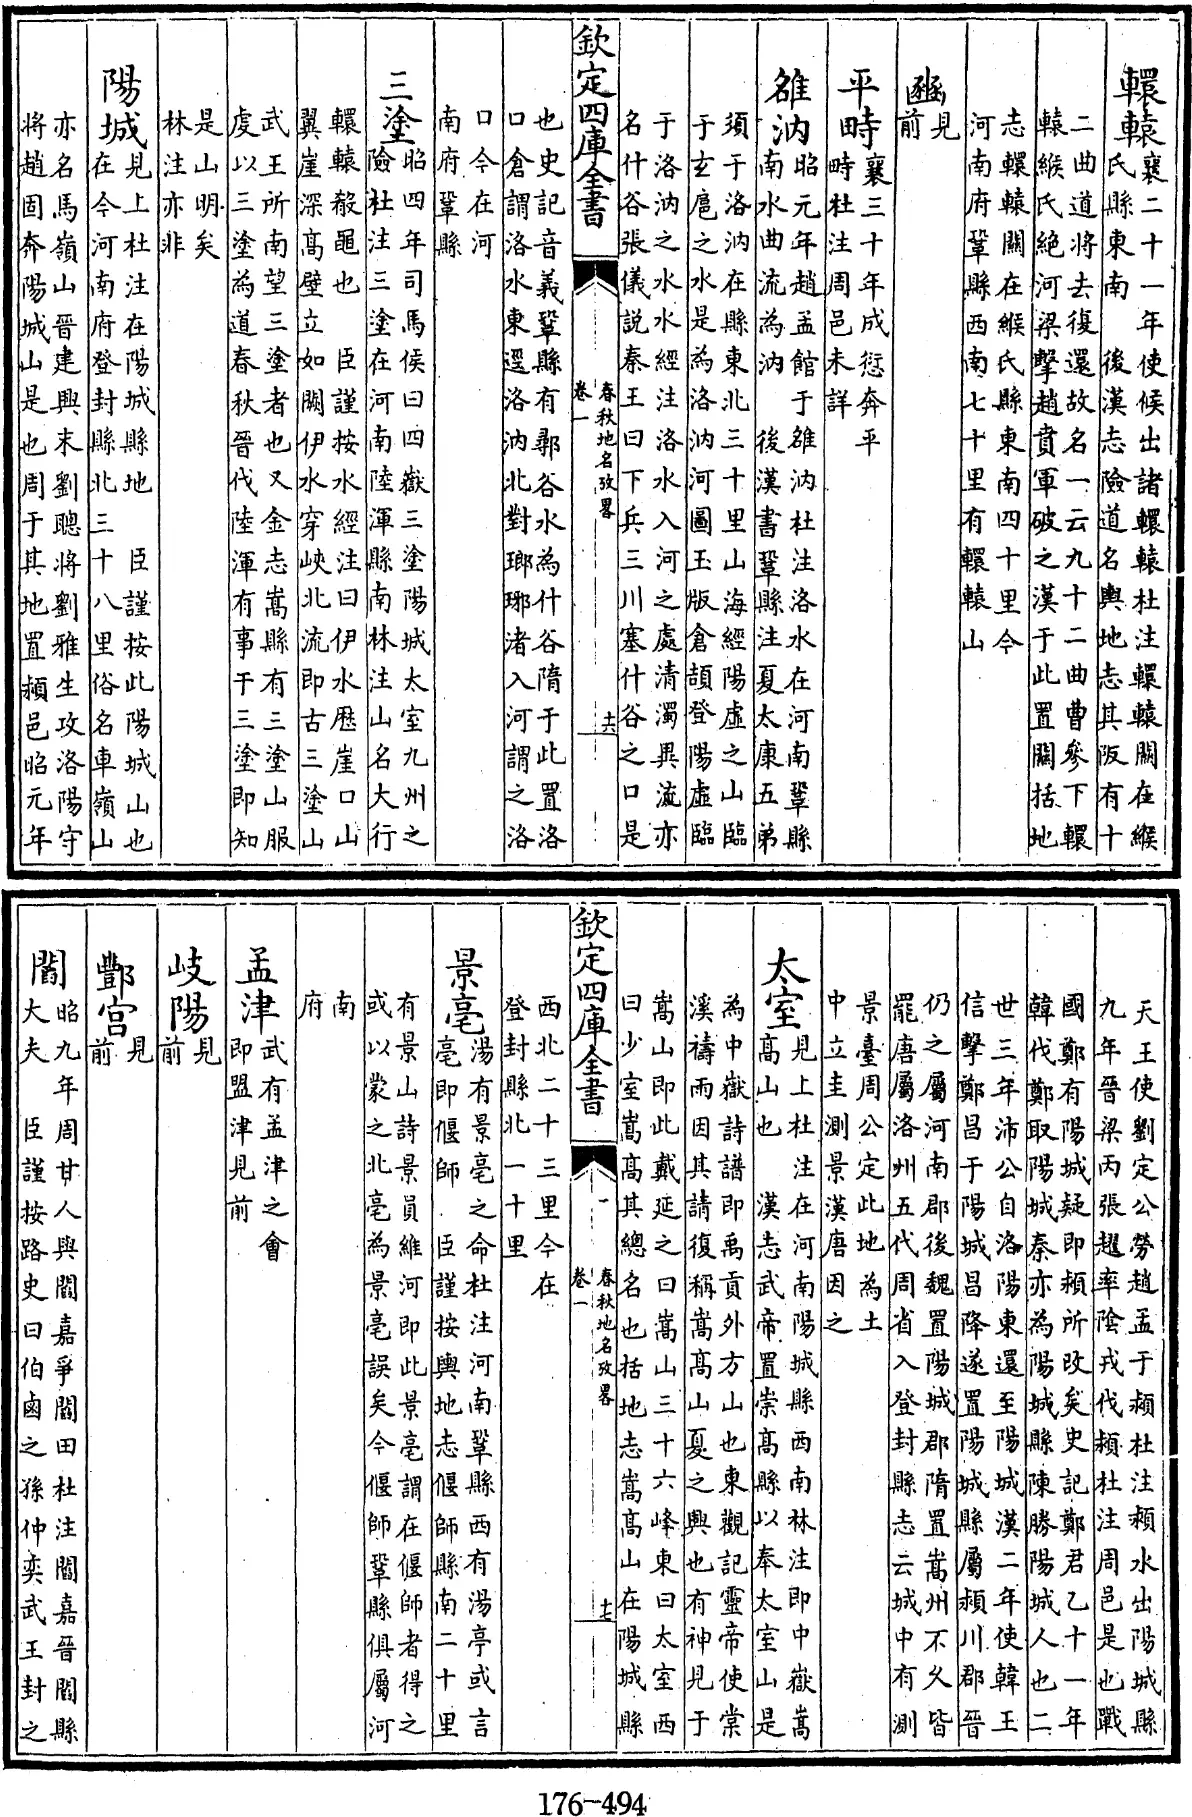 轘轅
襄二十一年使候出諸轘轅杜注轘轅關在緱
氏縣東南　後漢志險道名輿地志其阪有十
二曲道將去復還故名一云九十二曲曹參下轘
轅緱氏絕河梁擊趙賁軍破之漢于此置關括地
志轘轅關在緱氏縣東南四十里今
河南府鞏縣西南七十里有轘轅山
豳
見
前
平畤
襄三十年成愆奔平
畤杜注周邑未詳
雒汭
昭元年趙孟館于雒汭杜注洛水在河南鞏縣
南水曲流為汭　後漢書鞏縣注夏太康五弟
須于洛汭在縣東北三十里山海經陽虛之山臨
于玄扈之水是為洛汭河圖玉版倉頡登陽虛臨
于洛汭之水水經注洛水入河之處清濁異流亦
名什谷張儀說秦王曰下兵三川塞什谷之口是
欽定四庫全書
春秋地名攷畧
卷一
十六
也史記音義鞏縣有鄩谷水為什谷隋于此置洛
口倉謂洛水東逕洛汭北對瑯琊渚入河謂之洛
口今在河
南府鞏縣
三塗
昭四年司馬侯曰四嶽三塗陽城太室九州之
險杜注三塗在河南陸渾縣南林注山名大行
轘轅殽黽也　臣謹按水經注曰伊水歷崖口山
翼崖深高壁立如闕伊水穿峽北流即古三塗山
武王所南望三塗者也又金志嵩縣有三塗山服
虔以三塗為道春秋晉伐陸渾有事于三塗即知
是山明矣
林注亦非
陽城
見上杜注在陽城縣地　臣謹按此陽城山也
在今河南府登封縣北三十八里俗名車嶺山
亦名馬嶺山晉建興末劉聰將劉雅生攻洛陽守
將趙固奔陽城山是也周于其地置潁邑昭元年
天王使劉定公勞趙孟于潁杜注潁水出陽城縣
九年晉梁丙張趯率陰戎伐潁杜注周邑是也戰
國鄭有陽城疑即潁所改矣史記鄭君乙十一年
韓伐鄭取陽城秦亦為陽城縣陳勝陽城人也二
世三年沛公自洛陽東還至陽城漢二年使韓王
信擊鄭昌于陽城昌降遂置陽城縣屬潁川郡晉
仍之屬河南郡後魏置陽城郡隋置嵩州不久皆
罷唐屬洛州五代周省入登封縣志云城中有測
景臺周公定此地為土
中立圭測景漢唐因之
太室
見上杜注在河南陽城縣西南林注即中嶽嵩
高山也　漢志武帝置崇高縣以奉太室山是
為中嶽詩譜即禹貢外方山也東觀記靈帝使棠
溪禱雨因其請復稱嵩高山夏之興也有神見于
嵩山即此戴延之曰嵩山三十六峰東曰太室西
曰少室嵩高其總名也括地志嵩高山在陽城縣
欽定四庫全書
春秋地名攷畧
卷一
十七
西北二十三里今在
登封縣北一十里
景亳
湯有景亳之命杜注河南鞏縣西有湯亭或言
亳即偃師　臣謹按輿地志偃師縣南二十里
有景山詩景員維河即此景亳謂在偃師者得之
或以蒙之北亳為景亳誤矣今偃師鞏縣俱屬河
南
府
孟津
武有孟津之會
即盟津見前
岐陽
見
前
酆宮
見
前
閻
昭九年周甘人與閻嘉爭閻田杜注閻嘉晉閻縣
大夫　臣謹按路史曰伯鹵之孫仲奕武王封之
176-494